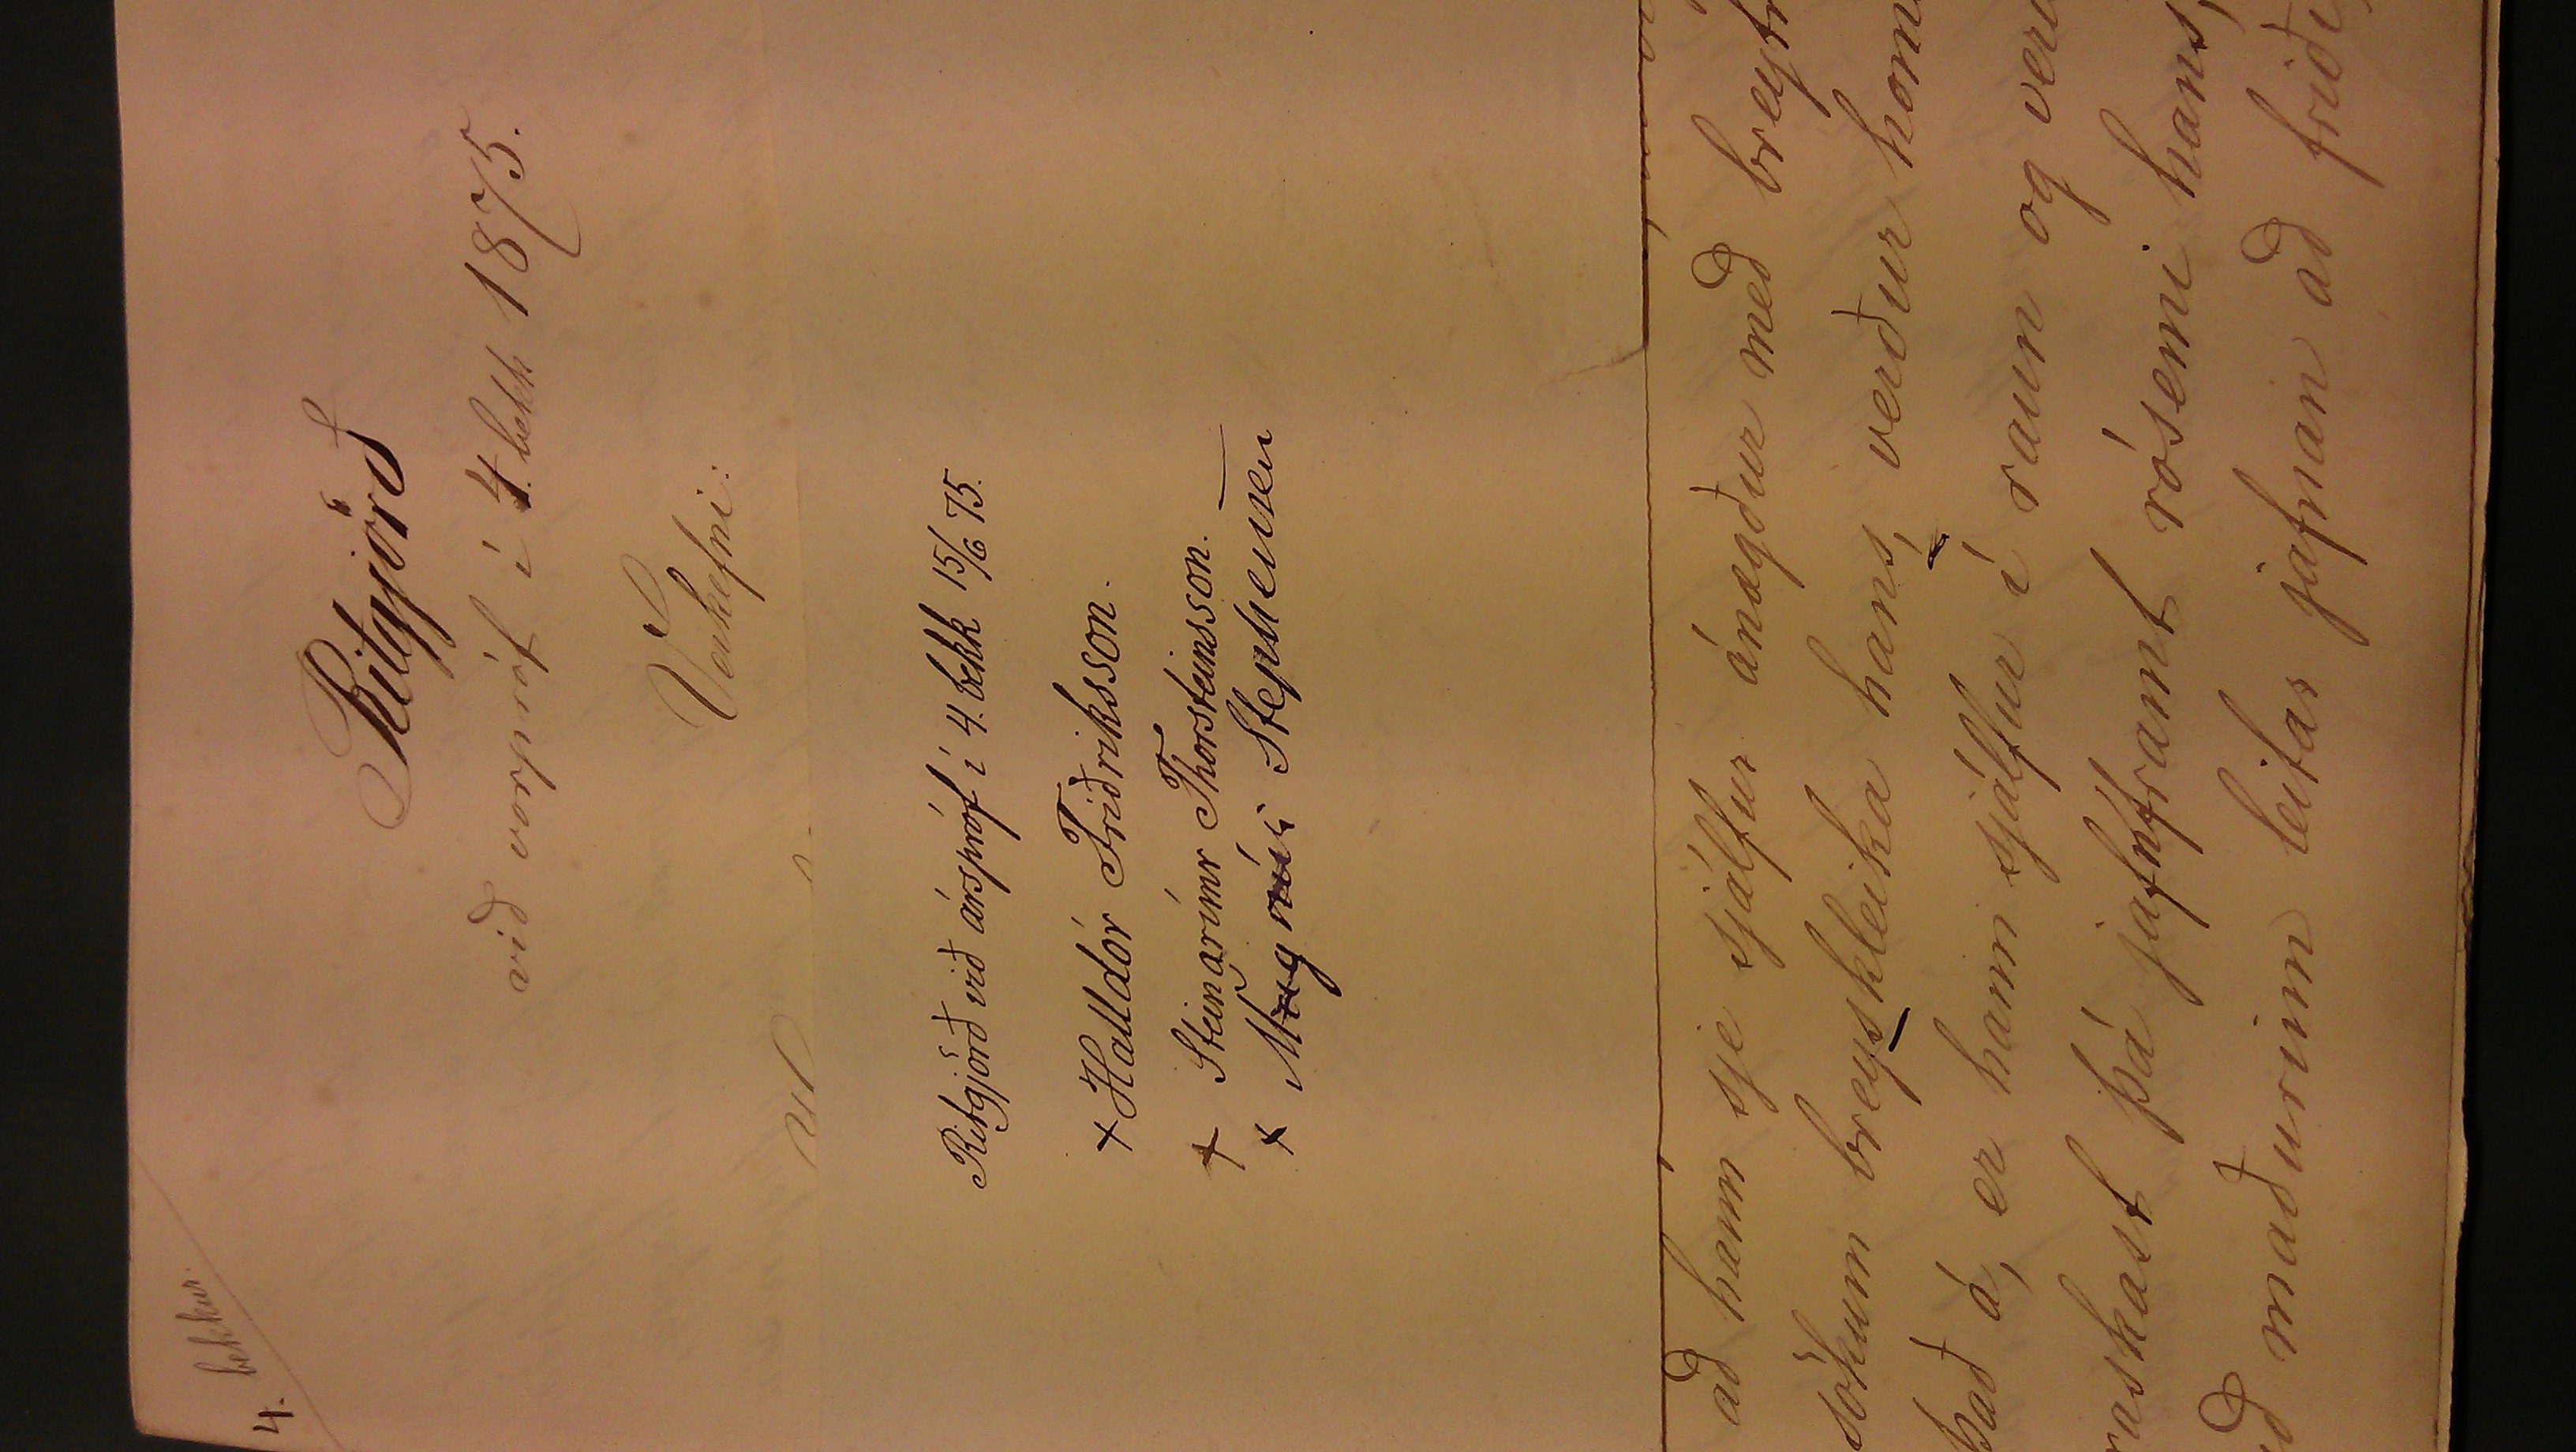 4. bekkur.
Ritgjörð
við vorpróf í 4. bekk 1875.
Verkefni:
Ritgjörð við árspróf í 4. bekk 15/6 75.
+ Halldór Friðriksson.
+ Steinarímr Thorsteinsson.
x Magnús Stephensen
að hann sje sjálfur ánægður með breytn
sökum breyskleika hans, verður honu
það á, er hann sjálfur í raun og veru
raskast þá jafnframt rósemi hans,
maðurinn leitar jafnan að friði